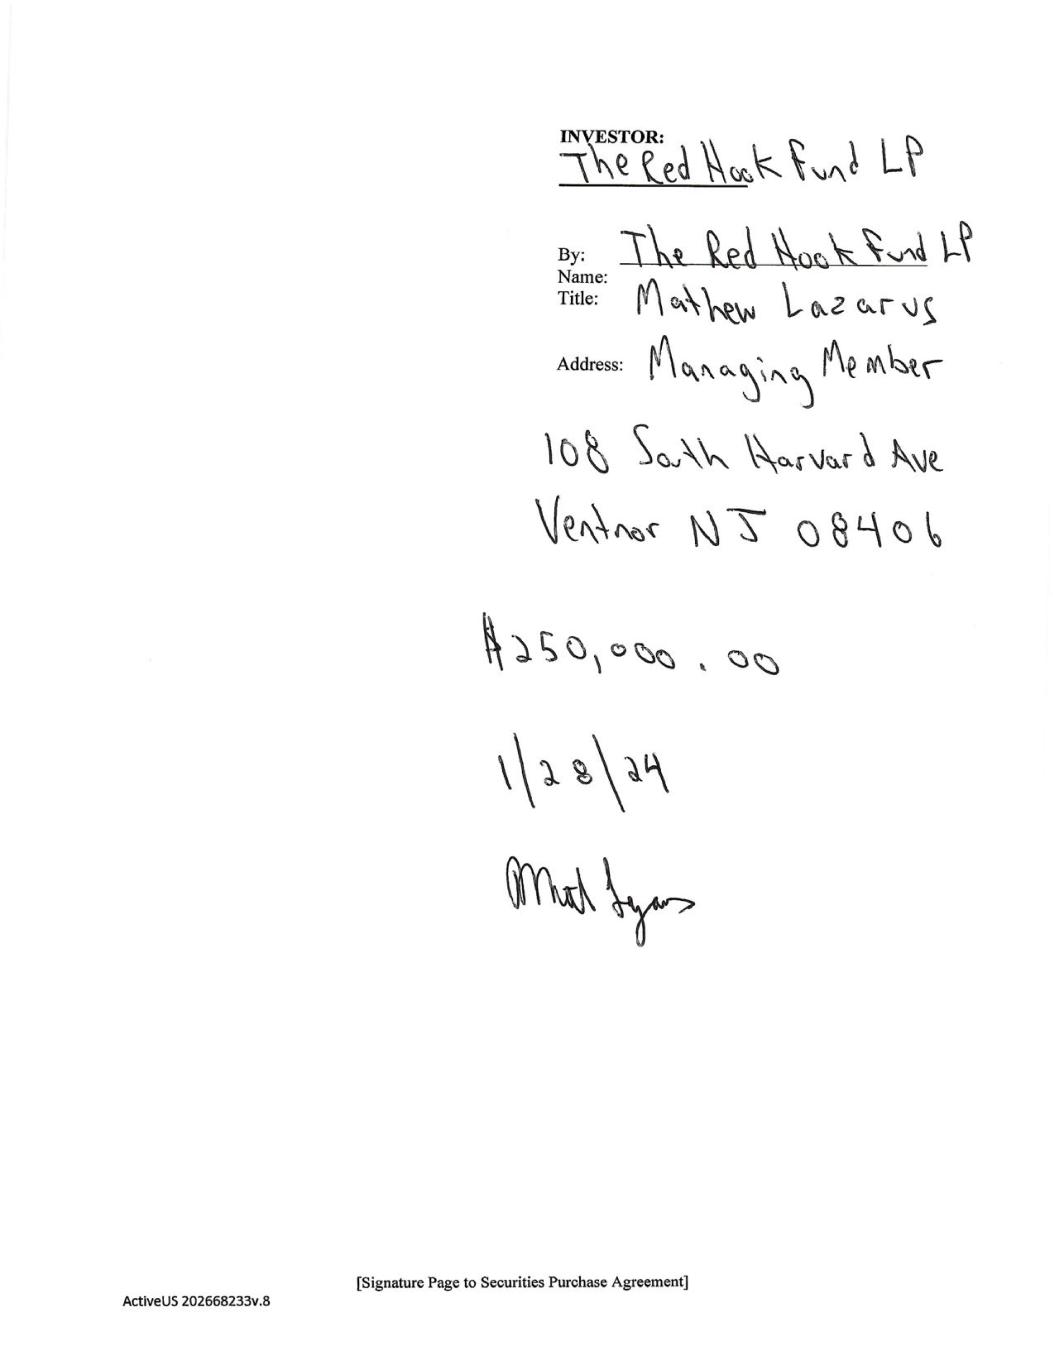 INVESTOR:
The Red Hook Fund LP
By: The Red Hook Fund LP
Name:
Title: Mathew Lazarus
Address: Managing Member
108 South Harvard Ave
Ventnor NJ 08406
$250,000.00
1/28/24
[Signature Page to Securities Purchase Agreement]
ActiveUS 202668233v.8